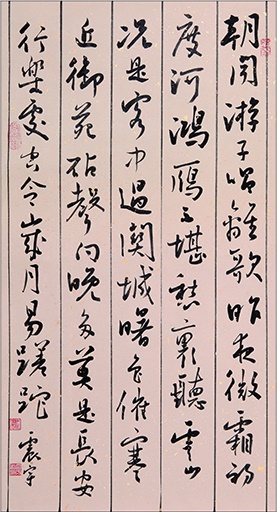 朝聞游子唱離歌昨夜微霜初
度河鴻鴈不堪愁裏聽雲山
況是客中過關城曙色催寒
近御苑砧聲向晚多莫是長安
行樂處空令歲月易蹉跎 震宇